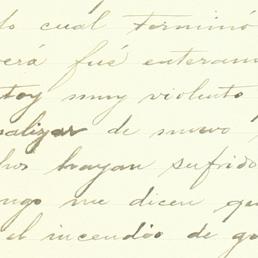 lo cual terminó
erá fué enteram
stoy muy violento
alizar de nuevo
hos hayan sufrido
ngo me dicen que
el incendio de go